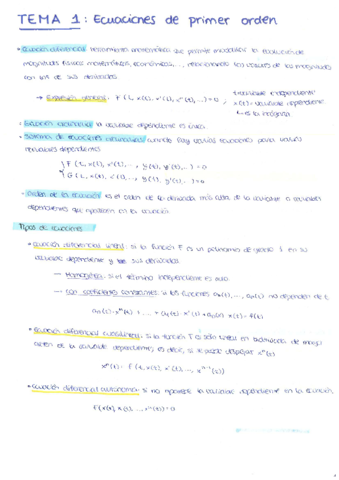 TEMA 1: Ecuaciones de primer orden
• Ecuación diferencial: herramienta matemática que permite modelizar la evolución de
magnitudes físicas, matemáticas, económicas,..., relacionando los valores de las magnitudes
con los de sus derivadas
→ Expresión general: F(t, x(t), x'(t), x''(t), ...) = 0
t: variable independiente
x(t): variable dependiente
↳ es la incógnita
• Ecuación diferencial: la variable dependiente es única.
• Sistema de ecuaciones diferenciales: cuando hay varias ecuaciones para varias
variables dependientes
F(t, x(t), x'(t), ..., y(t), y'(t), ...) = 0
G(t, x(t), x'(t), ..., y(t), y'(t), ...) = 0
• Orden de la ecuación: es el orden de la derivada más alta de la variable o variables
dependientes que aparecen en la ecuación
Tipos de ecuaciones:
• Ecuación diferencial lineal: si la función F es un polinomio de grado 1 en su
variable dependiente y sus derivadas
— Homogénea: si el término independiente es nulo
— Con coeficientes constantes: si las funciones a₀(t), ..., aₙ(t) no dependen de t.
aₙ(t)·xⁿ(t) + ... + a₁(t) x'(t) + a₀(t) x(t) = f(t)
• Ecuación diferencial cuasilineal: si la función F es sólo lineal en la derivada de mayor
orden de la variable dependiente, es decir, si se puede despejar xⁿ(t)
xⁿ(t) = F(t, x(t), x'(t), ..., xⁿ⁻¹(t))
• Ecuación diferencial autónoma: si no aparece la variable independiente en la ecuación
F(x(t), x'(t), ..., xⁿ(t)) = 0